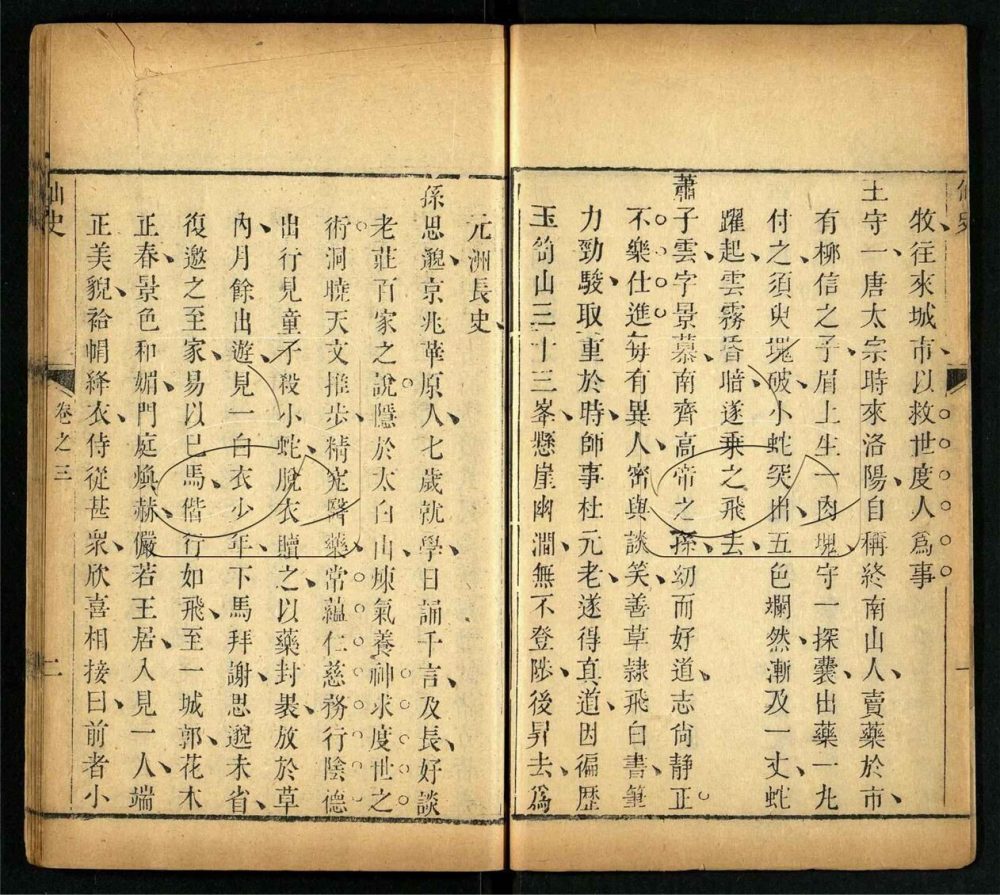 牧往來城市以救世度人爲事
王守一唐太宗時來洛陽自稱終南山人賣藥於市
有柳信之子眉上生一肉塊守一探囊出藥一丸
付之須臾塊破小蛇突出五色爛然漸及一丈蛇
躍起雲霧昏暗遂乘之飛去
蕭子雲字景慕南齊高帝之孫幼而好道志尙静正
不樂仕進每有異人密與談笑善草隸飛白書筆
力勁駿取重於時師事杜元老遂得真道因徧歷
玉笥山三十三峯懸崖幽澗無不登陟後昇去爲
元洲長史
孫思邈京兆華原人七歲就學日誦千言及長好談
老莊百家之說隱於太白山煉氣養神求度世之
術洞曉天文推步精究醫藥常蘊仁慈務行陰德
出行見童子殺小蛇脫衣贖之以藥封裹放於草
內月餘出遊見一白衣少年下馬拜謝思邈未省
復邀之至家易以巳馬偕行如飛至一城郭花木
正春景色和媚門庭煥赫儼若王居入見一人端
正美貌袷帽絳衣侍從甚衆欣喜相接曰前者小
仙史
卷之三
二